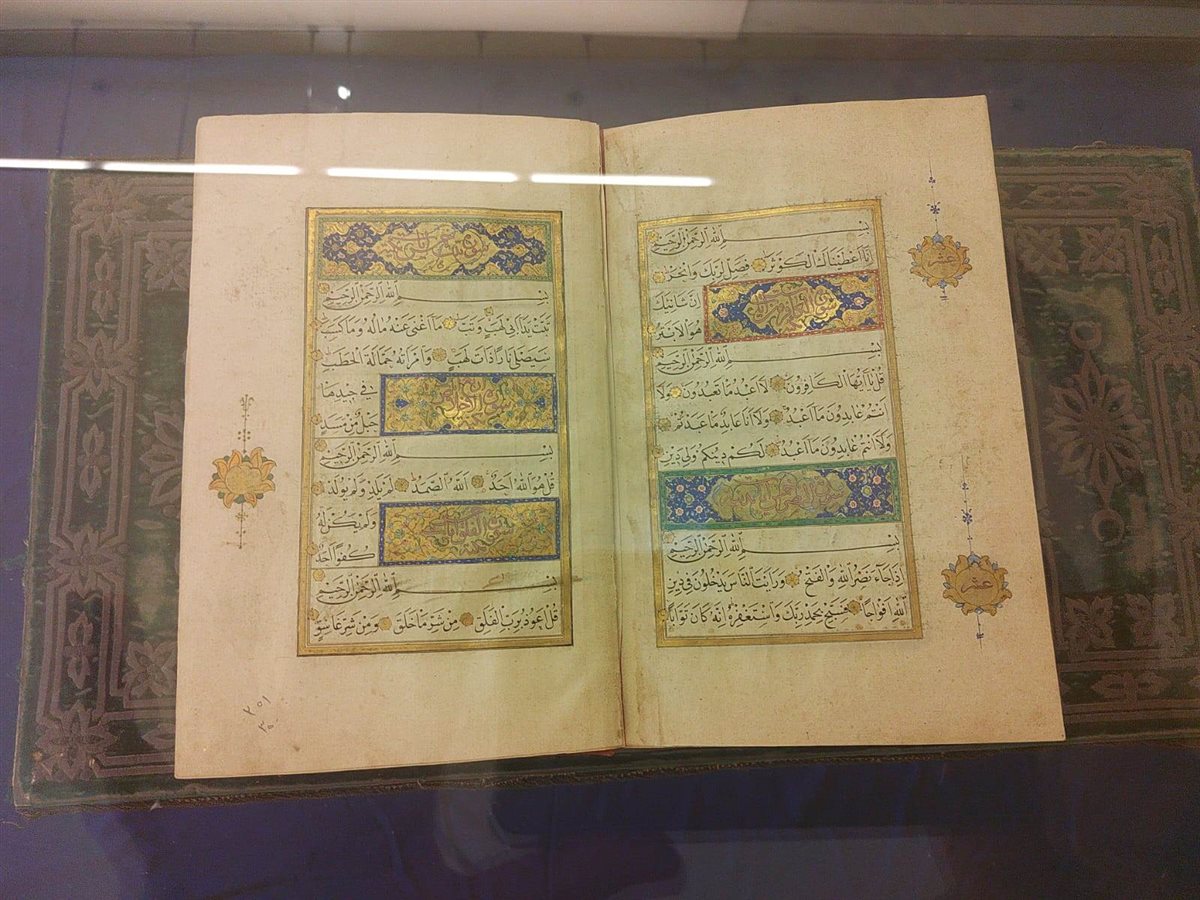 بِسْمِ اللّٰهِ الرَّحْمٰنِ الرَّحِيمِ
اِنَّا اَعْطَيْنَاكَ الْكَوْثَرَ فَصَلِّ لِرَبِّكَ وَانْحَرْ
عشر
اِنَّ شَانِئَكَ
هُوَ الْاَبْتَرُ
بِسْمِ اللّٰهِ الرَّحْمٰنِ الرَّحِيمِ
قُلْ يَا اَيُّهَا الْكَافِرُونَ لَا اَعْبُدُ مَا تَعْبُدُونَ وَلَا
اَنْتُمْ عَابِدُونَ مَا اَعْبُدُ وَلَا اَنَا عَابِدٌ مَا عَبَدْتُمْ
وَلَا اَنْتُمْ عَابِدُونَ مَا اَعْبُدُ لَكُمْ دِينُكُمْ وَلِيَ دِينِ
بِسْمِ اللّٰهِ الرَّحْمٰنِ الرَّحِيمِ
اِذَا جَاءَ نَصْرُ اللّٰهِ وَالْفَتْحُ وَرَاَيْتَ النَّاسَ يَدْخُلُونَ فِي دِينِ
عشر
اللّٰهِ اَفْوَاجًا فَسَبِّحْ بِحَمْدِ رَبِّكَ وَاسْتَغْفِرْهُ اِنَّهُ كَانَ تَوَّابًا
بِسْمِ اللّٰهِ الرَّحْمٰنِ الرَّحِيمِ
تَبَّتْ يَدَا اَبِي لَهَبٍ وَتَبَّ مَا اَغْنٰى عَنْهُ مَالُهُ وَمَا كَسَبَ
سَيَصْلٰى نَارًا ذَاتَ لَهَبٍ وَامْرَاَتُهُ حَمَّالَةَ الْحَطَبِ
فِي جِيدِهَا
حَبْلٌ مِنْ مَسَدٍ
بِسْمِ اللّٰهِ الرَّحْمٰنِ الرَّحِيمِ
قُلْ هُوَ اللّٰهُ اَحَدٌ اَللّٰهُ الصَّمَدُ لَمْ يَلِدْ وَلَمْ يُولَدْ
وَلَمْ يَكُنْ لَهُ
كُفُوًا اَحَدٌ
بِسْمِ اللّٰهِ الرَّحْمٰنِ الرَّحِيمِ
قُلْ اَعُوذُ بِرَبِّ الْفَلَقِ مِنْ شَرِّ مَا خَلَقَ وَمِنْ شَرِّ غَاسِقٍ